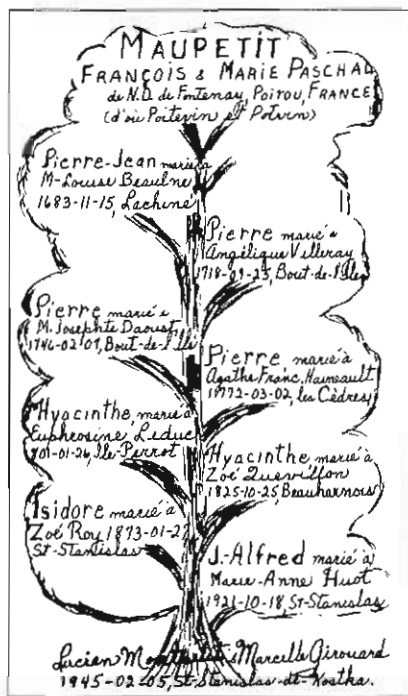 MAUPETIT
FRANÇOIS & MARIE PASCHAU
de N.D. de Fontenay, POITOU, FRANCE
(d'où Poitevin et Potvin)
Pierre-Jean marié à
M-Louise Beaulne
1683-11-15, Lachine
Pierre marié à
Angélique Villeray
1718-09-25, Bout-de-l'Ile
Pierre marié à
M. Josephte Daoust,
1746-02-07, Bout-de-l'Ile
Pierre marié à
Agathe Franc. Hameault
1772-03-02, les Cèdres
Hyacinthe, marié à
Euphrosine Leduc
01-26, Ile-Perrot
Hyacinthe marié à
Zoé Quevillon
1825-10-25, Beauharnois
Isidore marié à
Zoé Roy 1873-01-27
St-Stanislas
J.-Alfred marié à
Marie-Anne Huot
1921-10-18, St-Stanislas
Lucien & Marcelle Girouard
1945-02-05, St-Stanislas-de-Kostka.